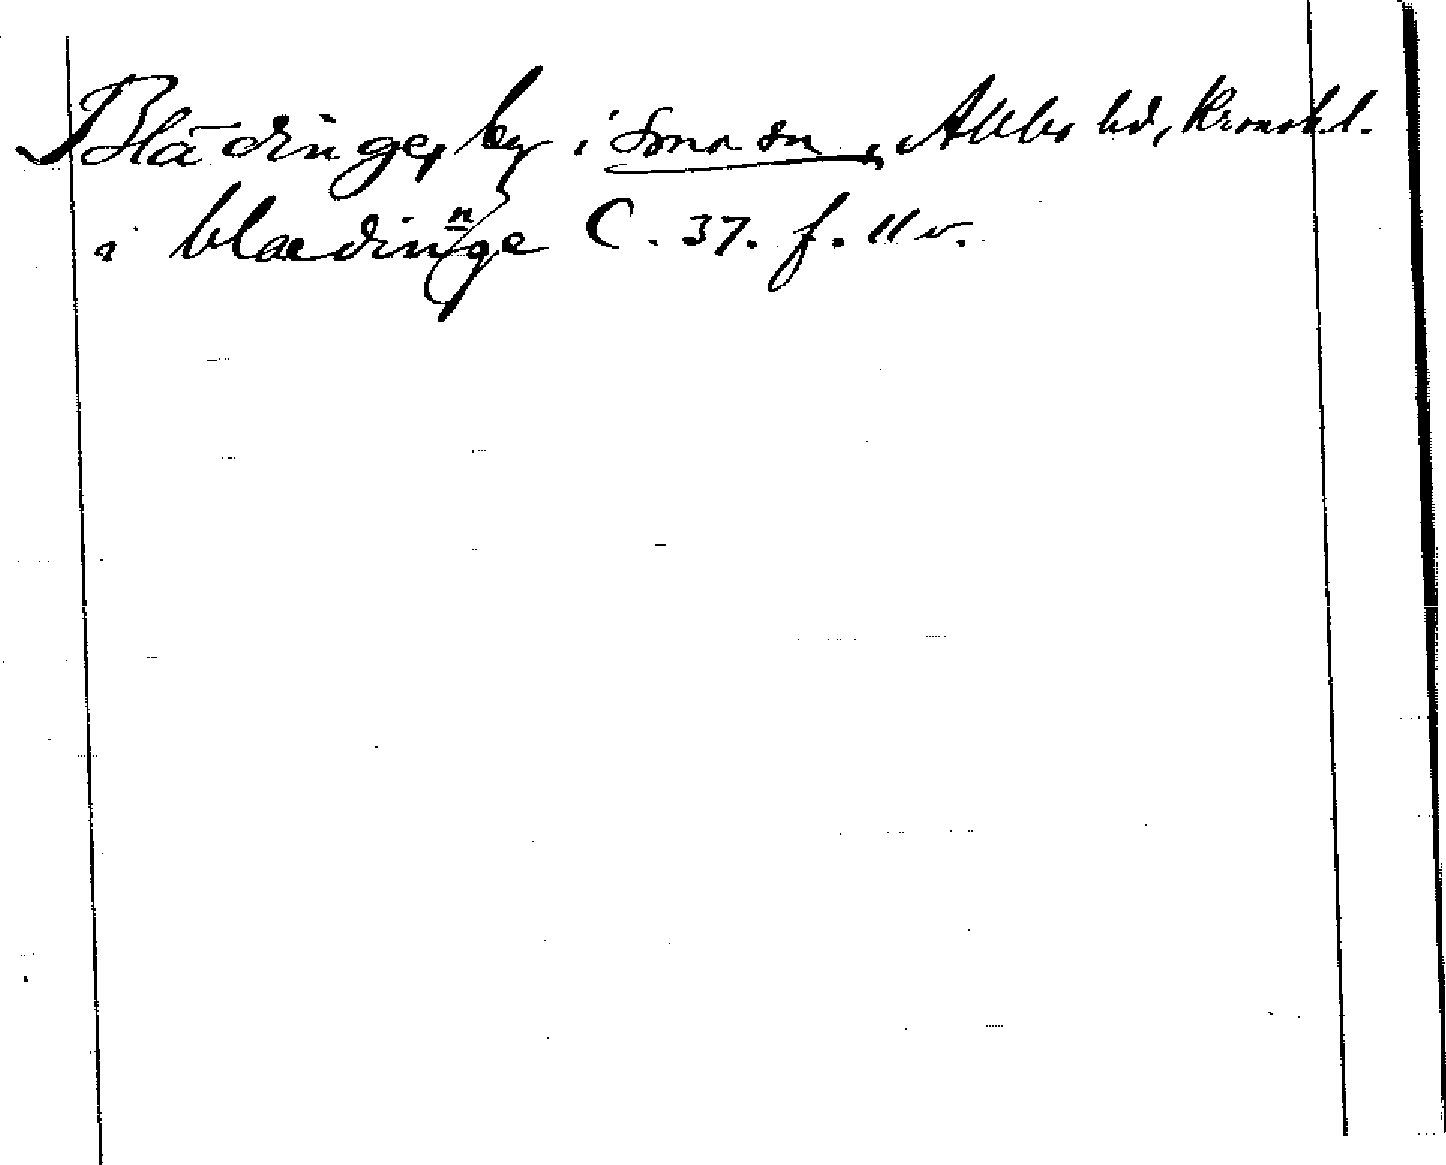 Blädinge, by i sma sn, Allbo hd, Kronobl.
i blædinge C. 37. f. 11 v.